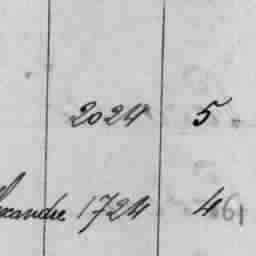 2024 5
exandre 1724 4